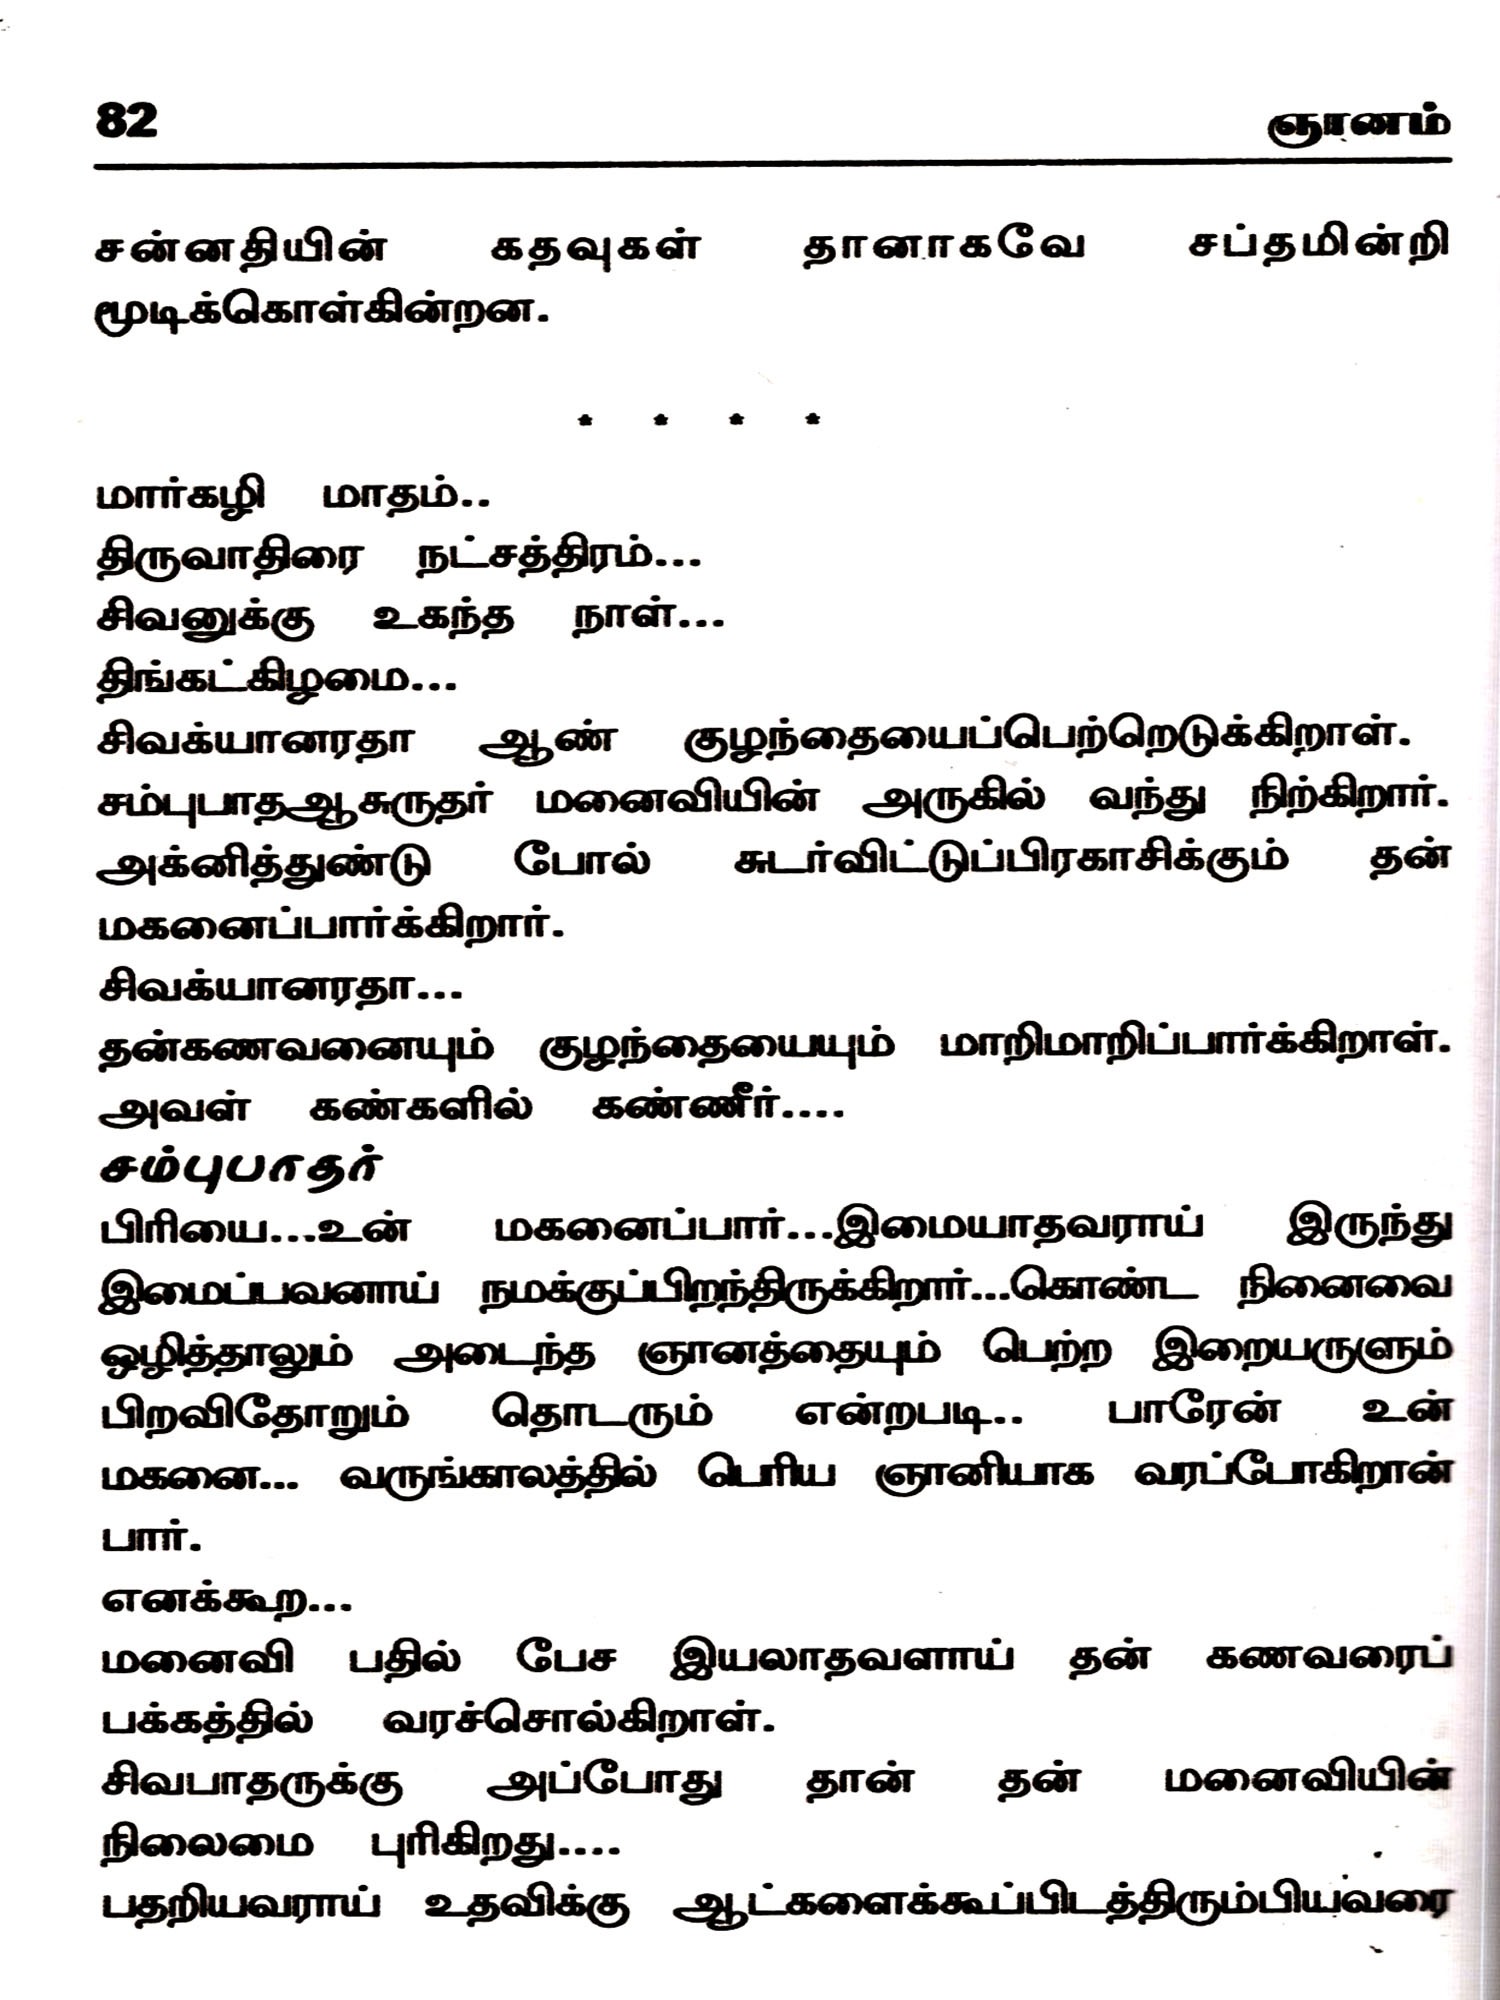 82 ஞானம்
சன்னதியின் கதவுகள் தானாகவே சப்தமின்றி
மூடிக்கொள்கின்றன.
* * * *
மார்கழி மாதம்..
திருவாதிரை நட்சத்திரம்...
சிவனுக்கு உகந்த நாள்...
திங்கட்கிழமை...
சிவக்யானரதா ஆண் குழந்தையைப்பெற்றெடுக்கிறாள்.
சம்புபாதஆசுருதர் மனைவியின் அருகில் வந்து நிற்கிறார்.
அக்னித்துண்டு போல் சுடர்விட்டுப்பிரகாசிக்கும் தன்
மகனைப்பார்க்கிறார்.
சிவக்யானரதா...
தன்கணவனையும் குழந்தையையும் மாறிமாறிப்பார்க்கிறாள்.
அவள் கண்களில் கண்ணீர்....
சம்புபாதர்
பிரியை...உன் மகனைப்பார்...இமையாதவராய் இருந்து
இமைப்பவனாய் நமக்குப்பிறந்திருக்கிறார்...கொண்ட நினைவை
ஒழித்தாலும் அடைந்த ஞானத்தையும் பெற்ற இறையருளும்
பிறவிதோறும் தொடரும் என்றபடி.. பாரேன் உன்
மகனை... வருங்காலத்தில் பெரிய ஞானியாக வரப்போகிறான்
பார்.
எனக்கூற...
மனைவி பதில் பேச இயலாதவளாய் தன் கணவரைப்
பக்கத்தில் வரச்சொல்கிறாள்.
சிவபாதருக்கு அப்போது தான் தன் மனைவியின்
நிலைமை புரிகிறது....
பதறியவராய் உதவிக்கு ஆட்களைக்கூப்பிடத்திரும்பியவரை